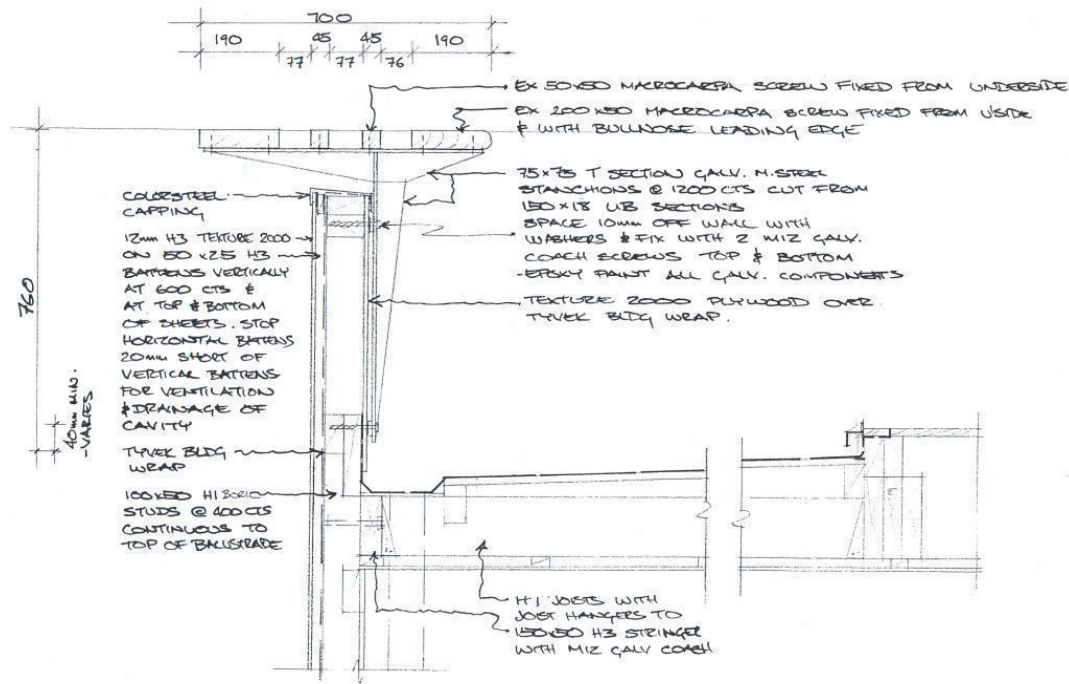 700
190 45 45 190
77 77 76
760
40mm MIN.
-VARIES
EX 50x50 MACROCARPA SCREW FIXED FROM UNDERSIDE
EX 200x50 MACROCARPA SCREW FIXED FROM U'SIDE
& WITH BULLNOSE LEADING EDGE
75x75 T SECTION GALV. M.STEEL
STANCHIONS @ 1200 CTS CUT FROM
150x18 UB SECTIONS
SPACE 10mm OFF WALL WITH
WASHERS & FIX WITH 2 M12 GALV.
COACH SCREWS TOP & BOTTOM
-EPOXY PAINT ALL GALV. COMPONENTS
TEXTURE 2000 PLYWOOD OVER
TYVEK BLDG WRAP.
COLORSTEEL
CAPPING
12mm H3 TEXTURE 2000
ON 50 x25 H3
BATTENS VERTICALLY
AT 600 CTS &
AT TOP & BOTTOM
OF SHEETS. STOP
HORIZONTAL BATTENS
20mm SHORT OF
VERTICAL BATTENS
FOR VENTILATION
& DRAINAGE OF
CAVITY
TYVEK BLDG
WRAP
100x50 H1 BORIC
STUDS @ 400 CTS
CONTINUOUS TO
TOP OF BALUSTRADE
H1 JOISTS WITH
JOIST HANGERS TO
150x50 H3 STRINGER
WITH M12 GALV COACH